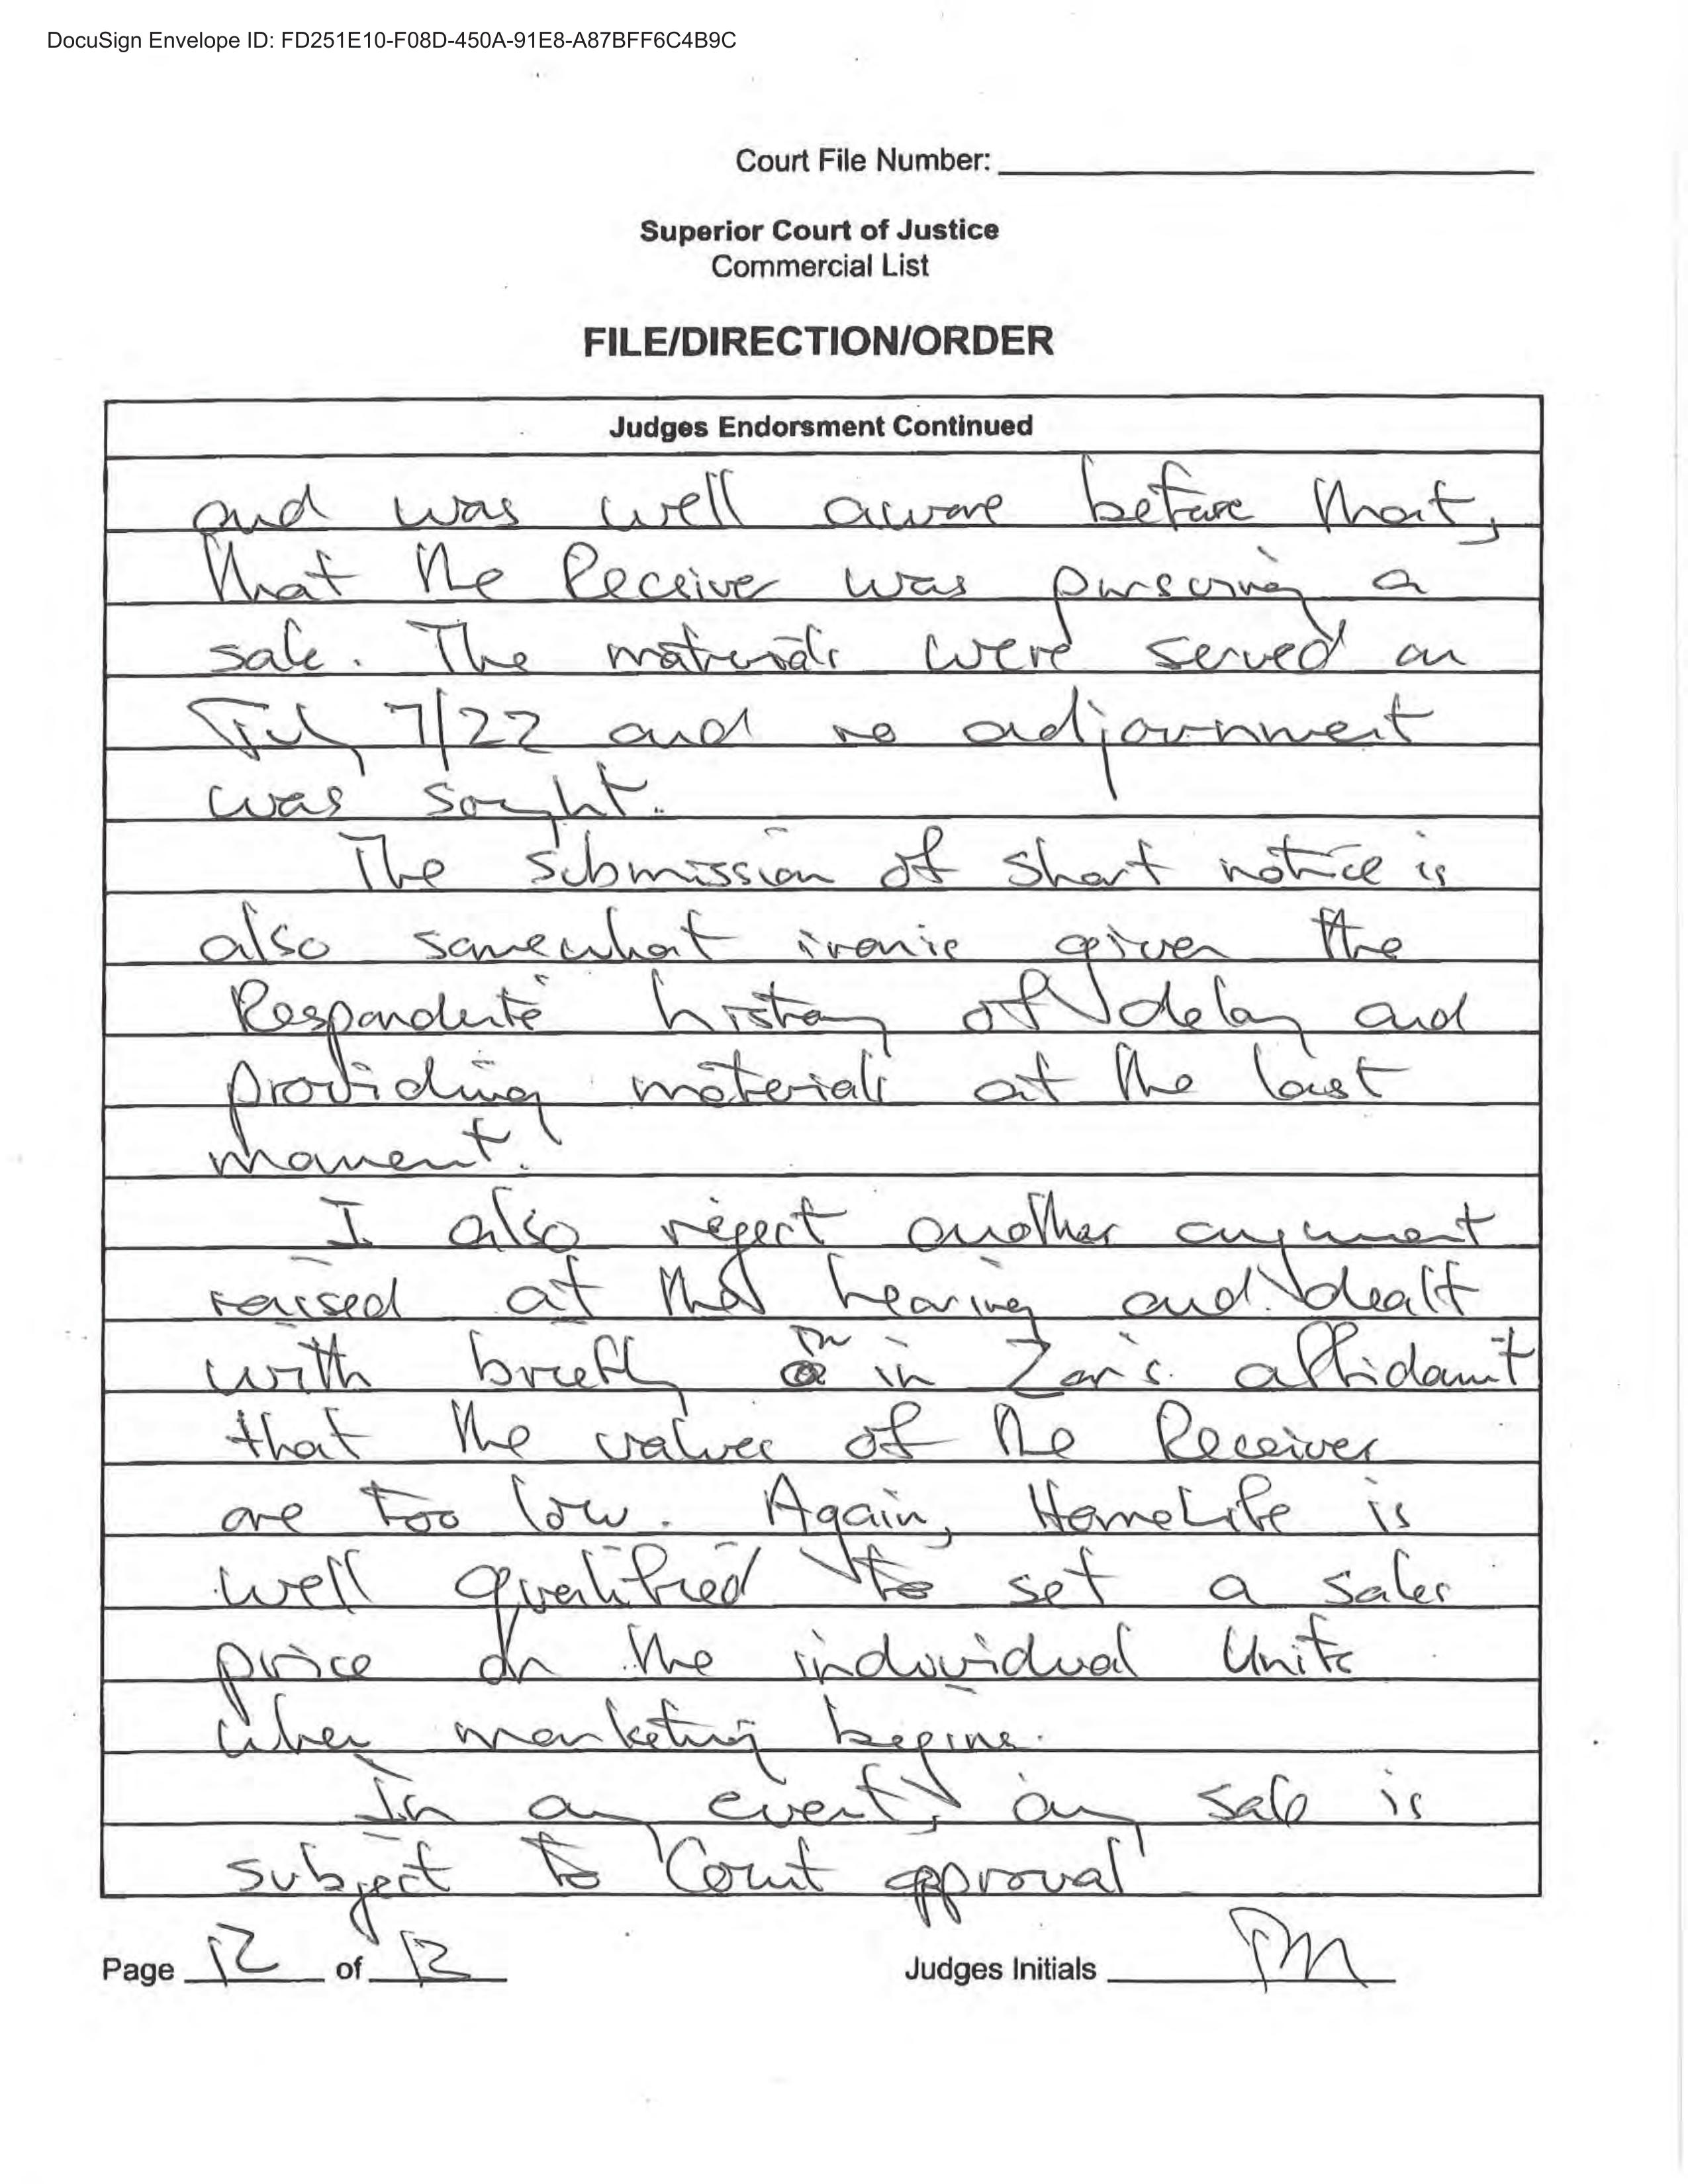 DocuSign Envelope ID: FD251E10-F08D-450A-91E8-A87BFF6C4B9C
Court File Number:
Superior Court of Justice
Commercial List
FILE/DIRECTION/ORDER
Judges Endorsment Continued
and was well aware before that,
that the Receiver was pursuing a
sale. The materials were served on
July 7/22 and no adjournment
was sought.
The submission of short notice is
also somewhat ironic given the
Respondents' history of delay and
providing materials at the last
moment.
I also reject another argument
raised at the hearing and dealt
with briefly in Zar's affidavit
that the values of the Receiver
are too low. Again, HomeLife is
well qualified to set a sales
price on the individual Units
when marketing begins.
In any event, any sale is
subject to Court approval
Page 12 of 13
Judges Initials PM